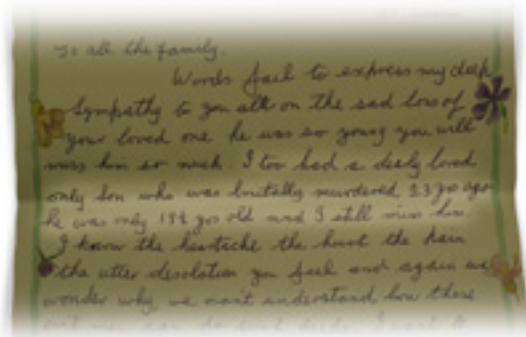 To all the family.
Words fail to express my deep
Sympathy to you all on the sad loss of
your loved one he was so young you will
miss him so much. I too had a dearly loved
only son who was brutally murdered 23 yrs ago
he was only 18½ yrs old and I still miss him.
I know the heartache the hurt the pain
the utter desolation you feel and again we
wonder why, we can't understand how these